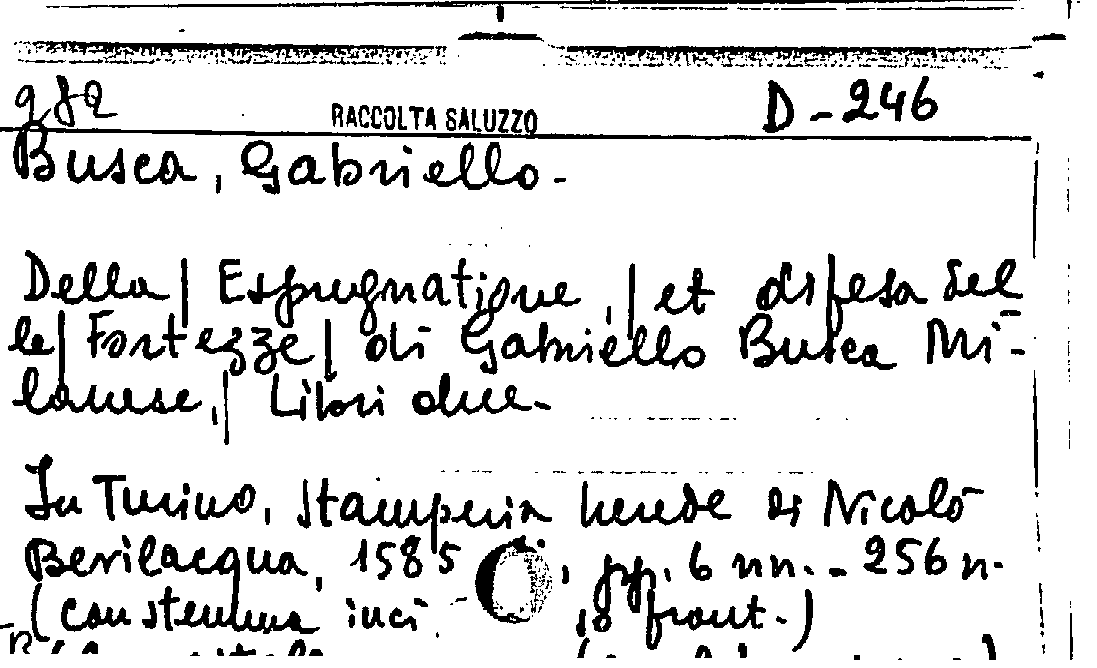 982 RACCOLTA SALUZZO D-246
Busca, Gabriello-
Della| Espugnatione,| et difesa del
le| Fortezze| di Gabriello Busca Mi-
lanese,| Libri due-
In Turino, Stamperia herede di Nicolò
Bevilacqua, 1585, pp. 6 nn. - 256 n.
(con stemma inci front.)